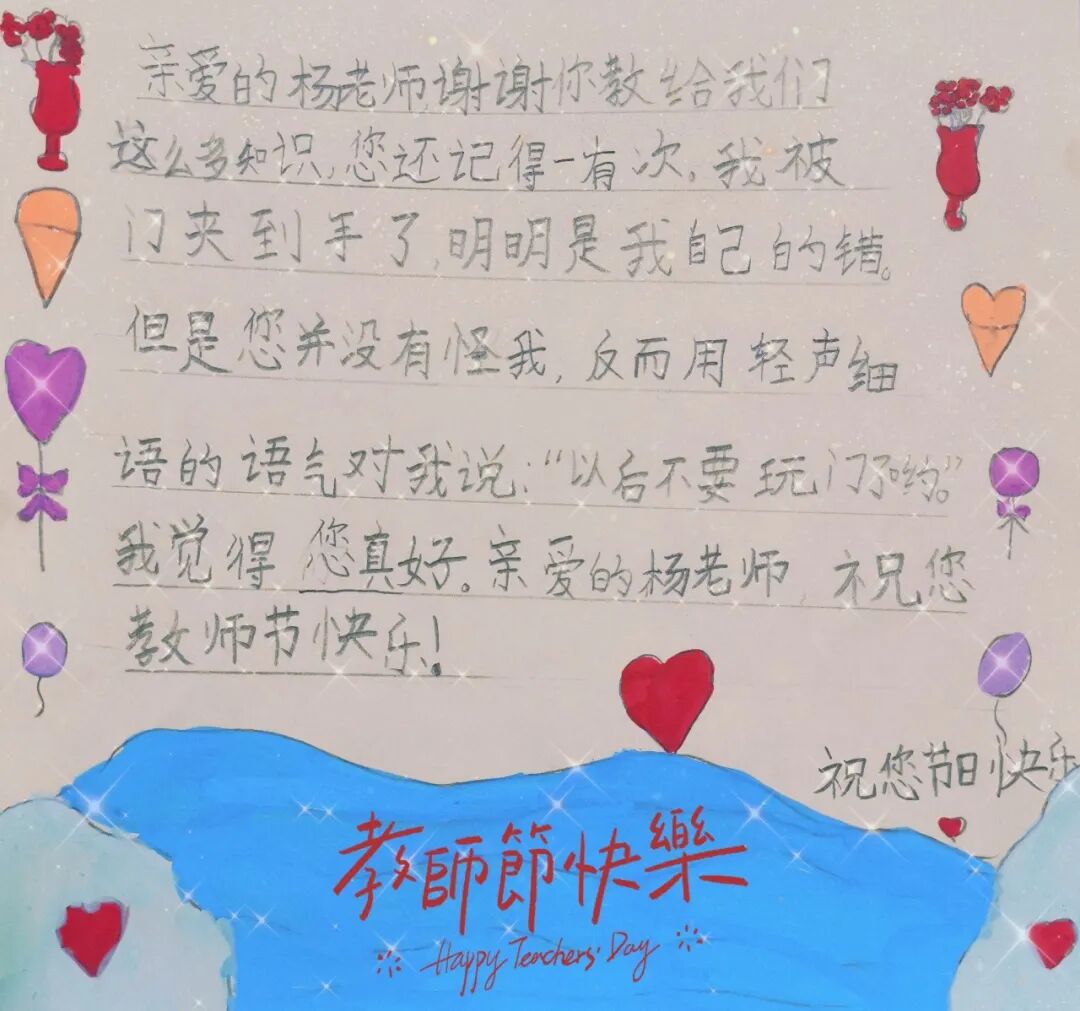 亲爱的杨老师谢谢你教给我们
这么多知识,您还记得一有次,我被
门夹到手了,明明是我自己的错。
但是您并没有怪我,反而用轻声细
语的语气对我说:“以后不要玩门了哟。”
我觉得您真好。亲爱的杨老师,祝您
教师节快乐!
祝您节日快乐
教師節快樂
Happy Teachers' Day